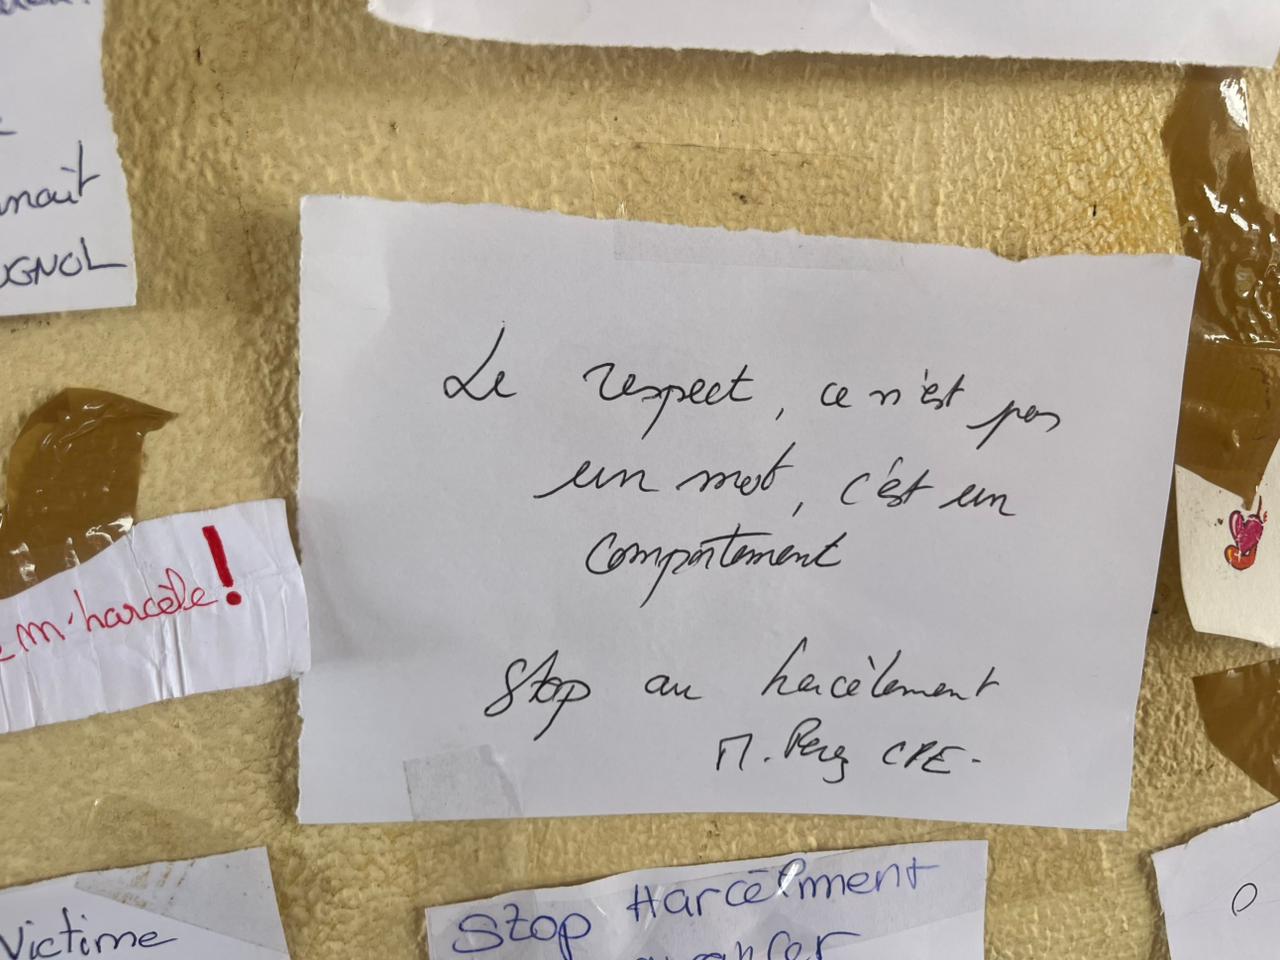 nait
GNOL
Le respect, ce n'est pas
un mot, c'est un
comportement
Stop au harcèlement
M. Perez CPE.
m'harcèle!
Victime
Stop Harcèlment